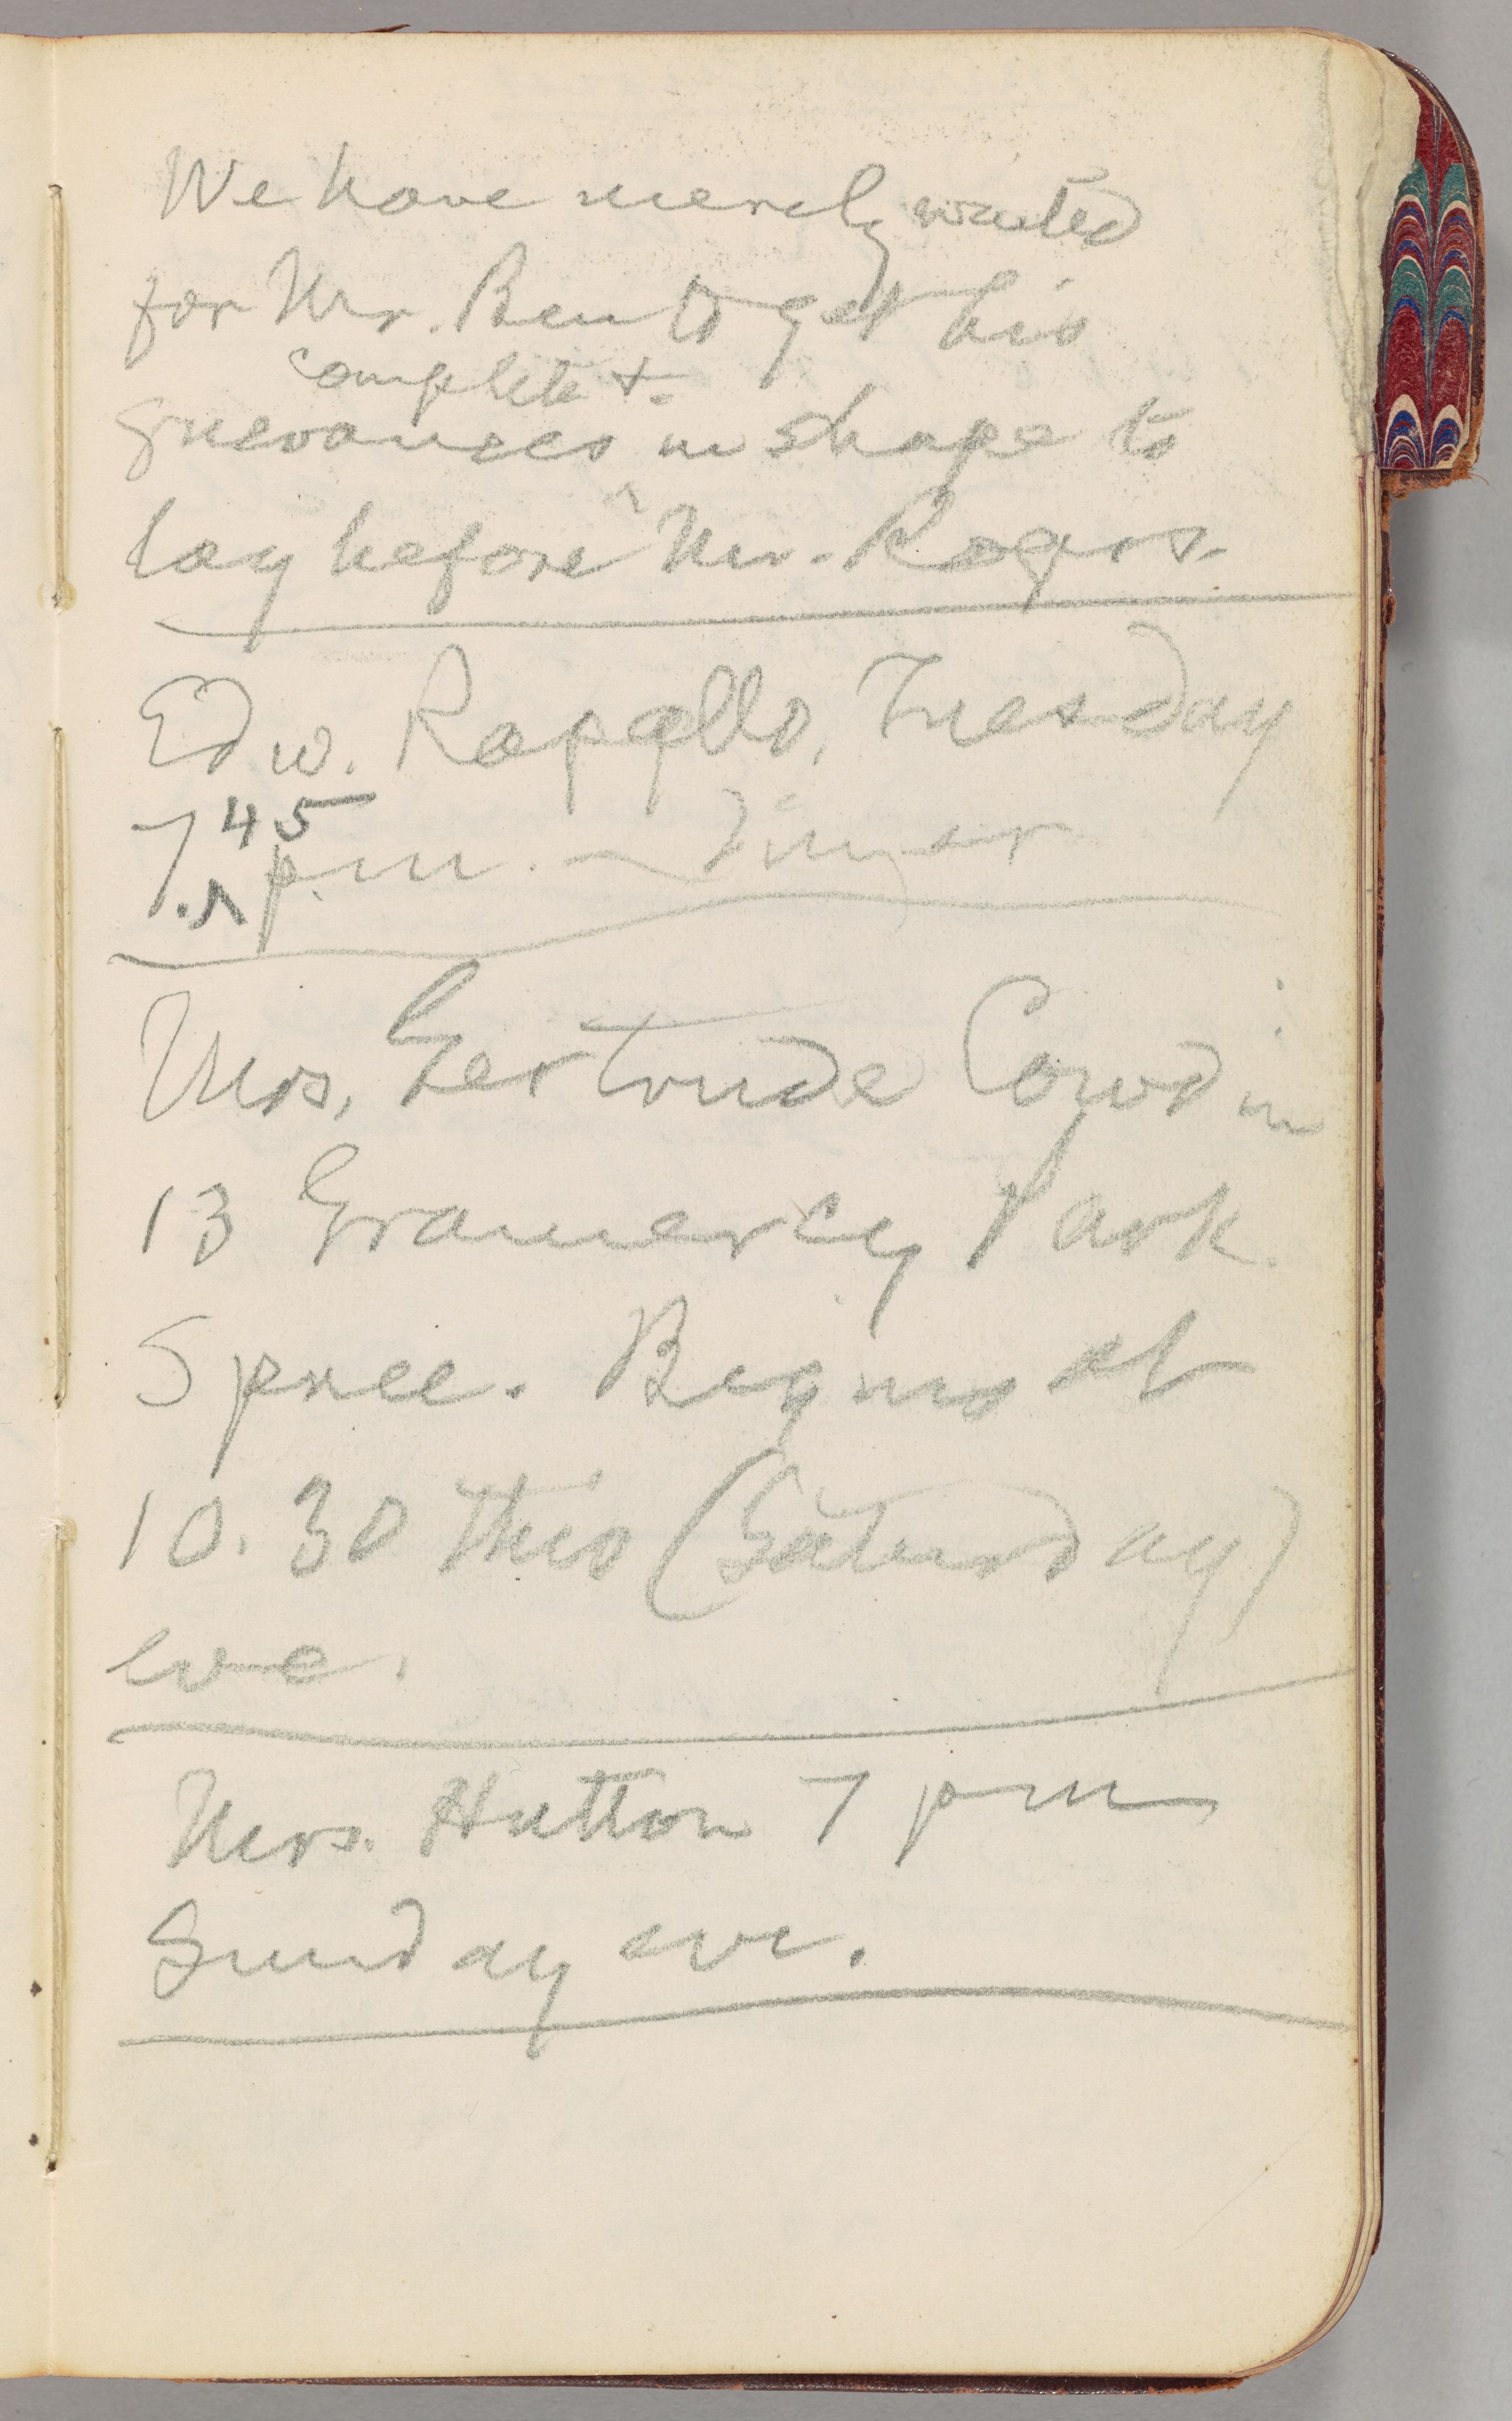 We have merely waited
for Mr. Ben to get his
complete &
grievances in shape to
lay before Mr. Rogers.
Edw. Rapallo, Tuesday
7.45 p.m. — Dinner
Mrs. Gertrude Cowdin
13 Gramercy Park.
Spree. Begins at
10.30 this (Saturday)
eve.
Mrs. Hutton 7 pm
Sunday eve.